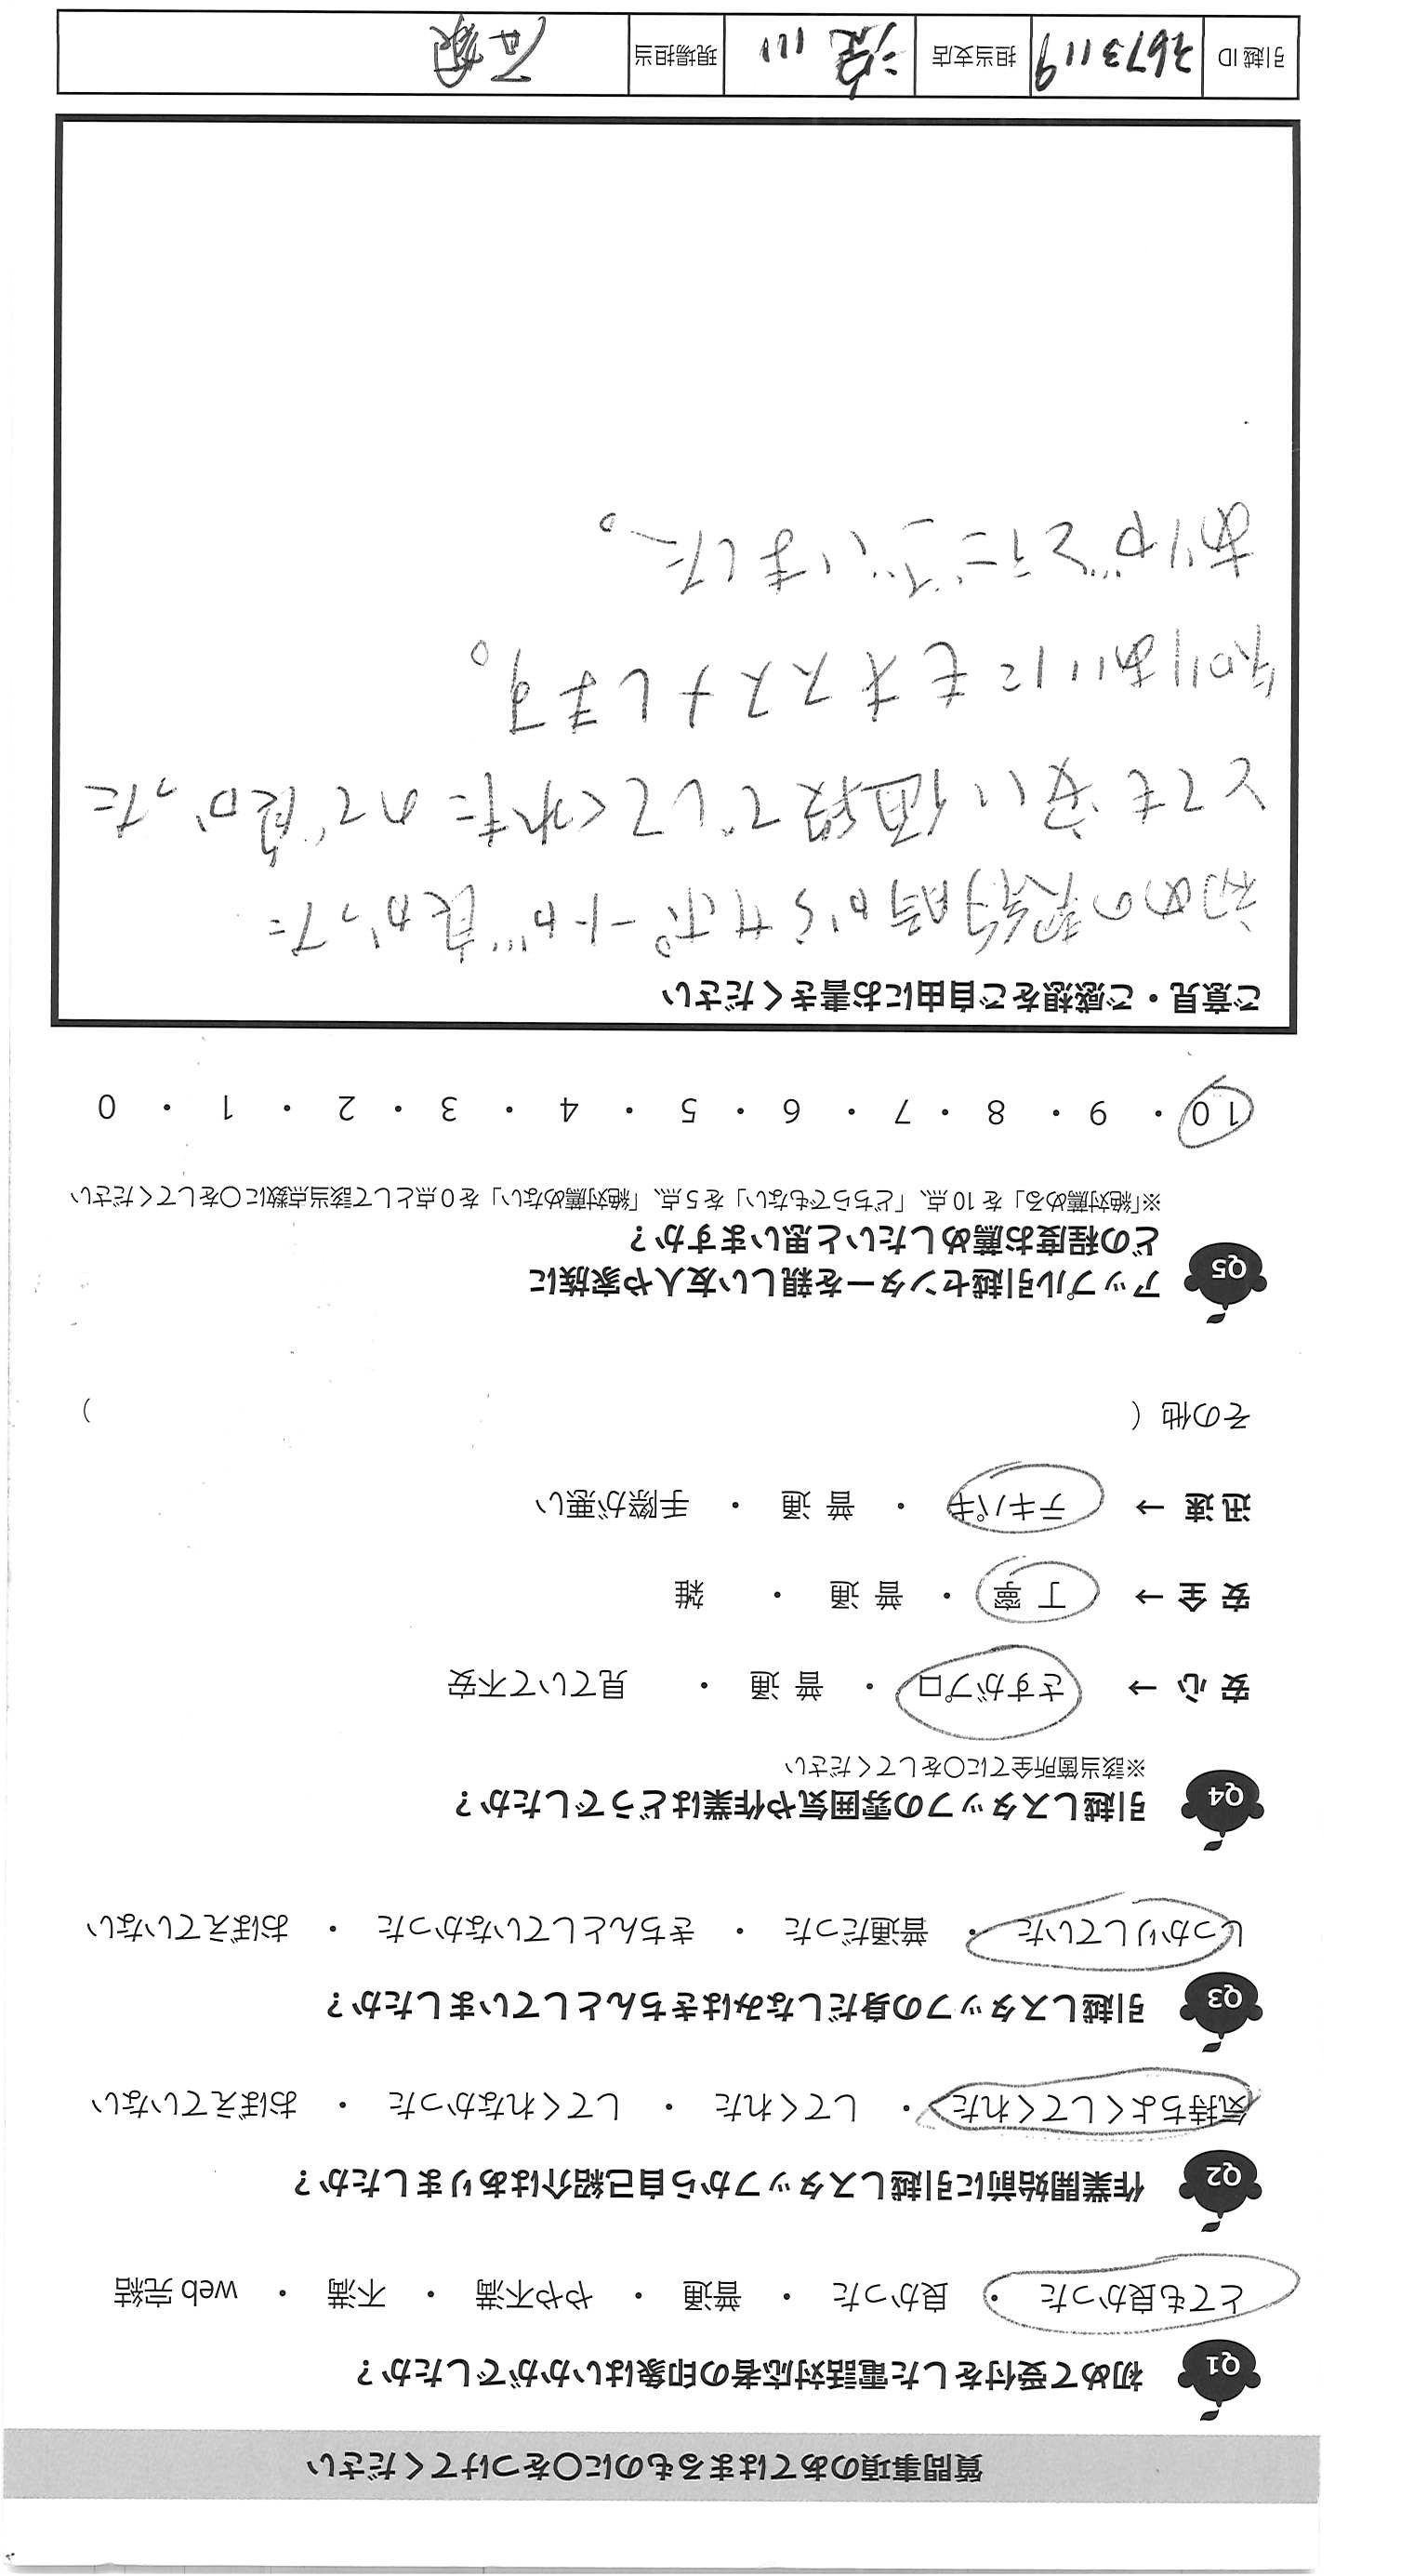 質問事項のあてはまるものに〇をつけてください
Q1 初めて受付をした電話対応者の印象はいかがでしたか？
とても良かった ・ 良かった ・ 普通 ・ やや不満 ・ 不満 ・ web 完結
Q2 作業開始前に引越しスタッフから自己紹介はありましたか？
気持ちよくしてくれた ・ してくれた ・ してくれなかった ・ おぼえていない
Q3 引越しスタッフの身だしなみはきちんとしていましたか？
しっかりしていた ・ 普通だった ・ きちんとしていなかった ・ おぼえていない
Q4 引越しスタッフの雰囲気や作業はどうでしたか？
※該当箇所全てに〇をしてください
安 心 → さすがプロ ・ 普 通 ・ 見ていて不安
安 全 → 丁 寧 ・ 普 通 ・ 雑
迅 速 → テキパキ ・ 普 通 ・ 手際が悪い
その他（ ）
Q5 アップル引越センターを親しい友人や家族に
どの程度お薦めしたいと思いますか？
※「絶対薦める」を 10 点、「どちらでもない」を 5 点、「絶対薦めない」を 0 点として該当点数に〇をしてください
10 ・ 9 ・ 8 ・ 7 ・ 6 ・ 5 ・ 4 ・ 3 ・ 2 ・ 1 ・ 0
ご意見・ご感想をご自由にお書きください
初めの契約時からサポートが良かった
とても安い値段でしてくれたので良かった
知りあいにもオススメします。
ありがとうございました。
引越 ID 2673119 担当支店 淀川 現場担当